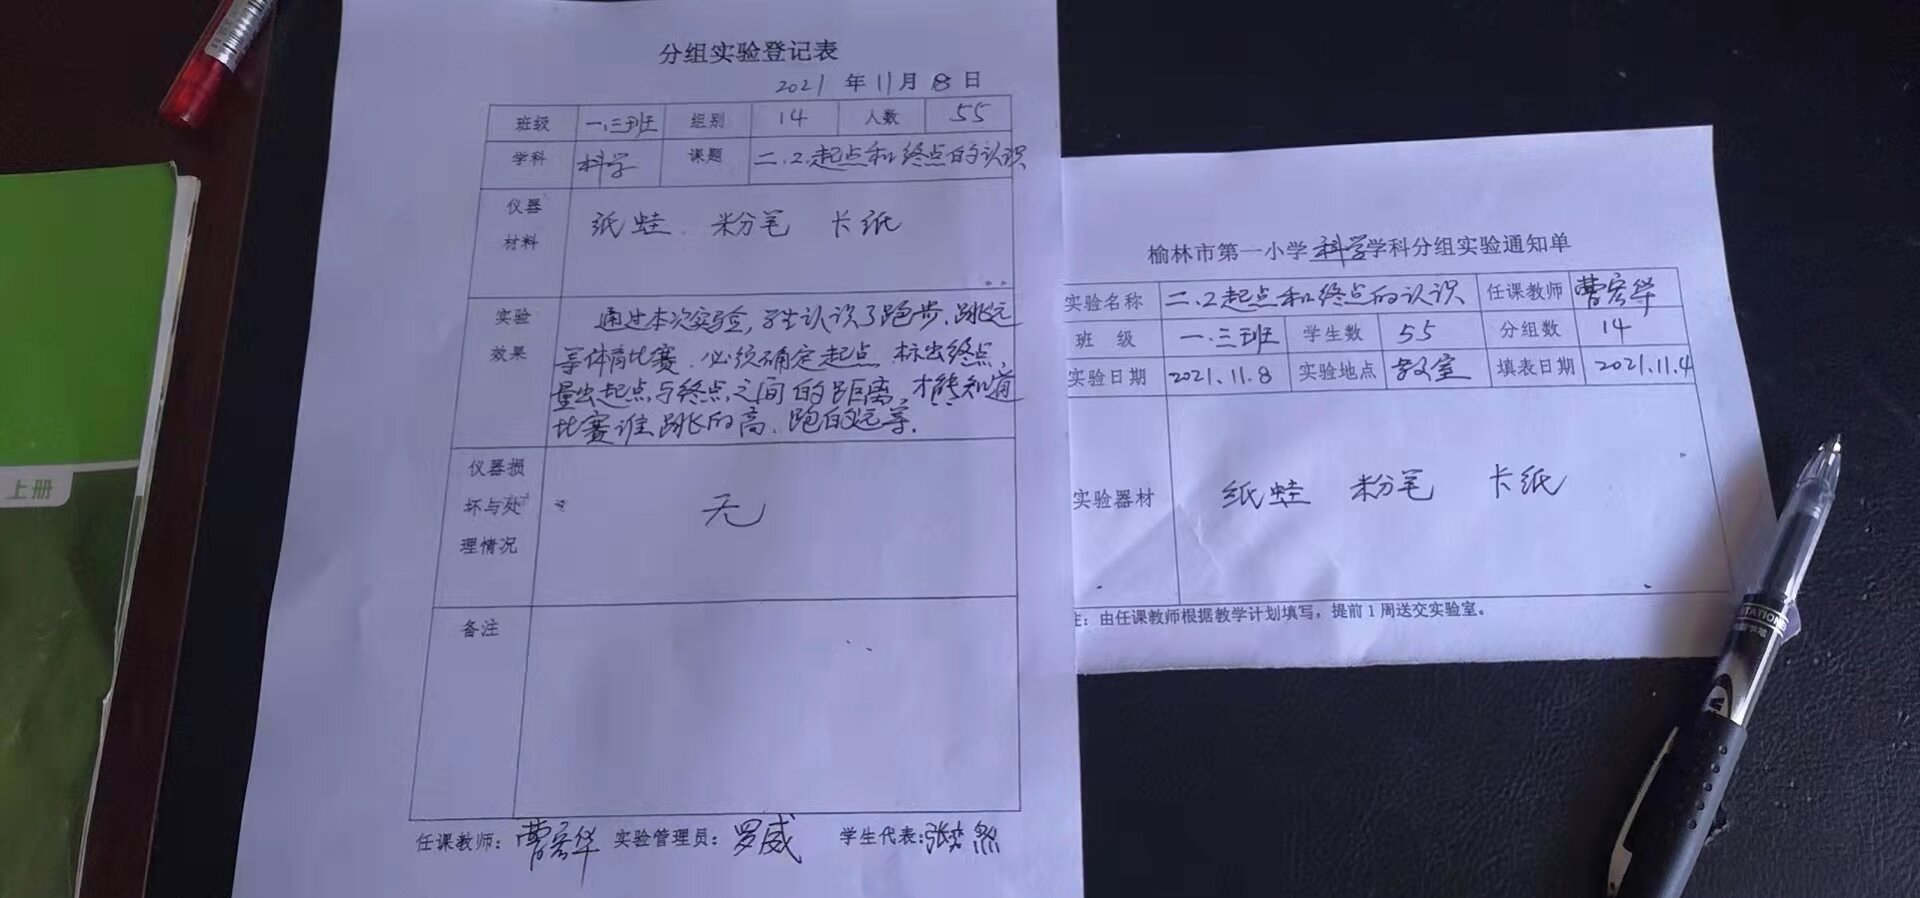 分组实验登记表
2021 年 11 月 8 日
班级 一.三班 组别 14 人数 55
学科 科学 课题 二.2.起点和终点的认识
仪器材料 纸蛙 粉笔 卡纸
实验效果 通过本次实验,学生认识了跑步、跳远
等体育比赛,必须确定起点,标出终点,
量出起点与终点之间的距离,才能知道
比赛谁跳的高、跑的远等.
仪器损
坏与处 无
理情况
备注
任课教师: 曹宏华 实验管理员: 罗威 学生代表:
上册
榆林市第一小学科学学科分组实验通知单
实验名称 二.2起点和终点的认识 任课教师 曹宏华
班 级 一.三班 学生数 55 分组数 14
实验日期 2021.11.8 实验地点 教室 填表日期 2021.11.4
实验器材 纸蛙 粉笔 卡纸
注: 由任课教师根据教学计划填写, 提前1周送交实验室。